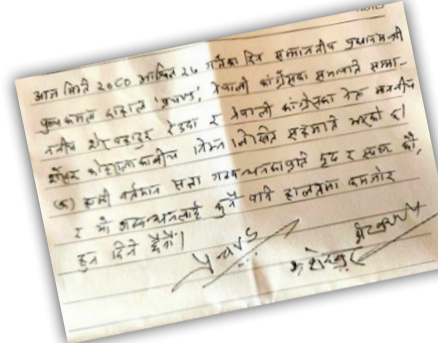 आज मिति २०८० आश्विन २५ गतेका दिन सम्माननीय प्रधानमन्त्री
पुष्पकमल दाहाल 'प्रचण्ड', नेपाली कांग्रेसका सभापति सम्मा-
ननीय शेर बहादुर देउवा र नेपाली कांग्रेसका नेता माननीय
शेखर कोइरालाबीच निम्न लिखित सहमति भएको छ।
(क) हामी वर्तमान सत्ता गठबन्धनप्रति दृढ र स्पष्ट छौं,
र यो गठबन्धनलाई कुनै पनि हालतमा कमजोर
हुन दिने छैनौं।